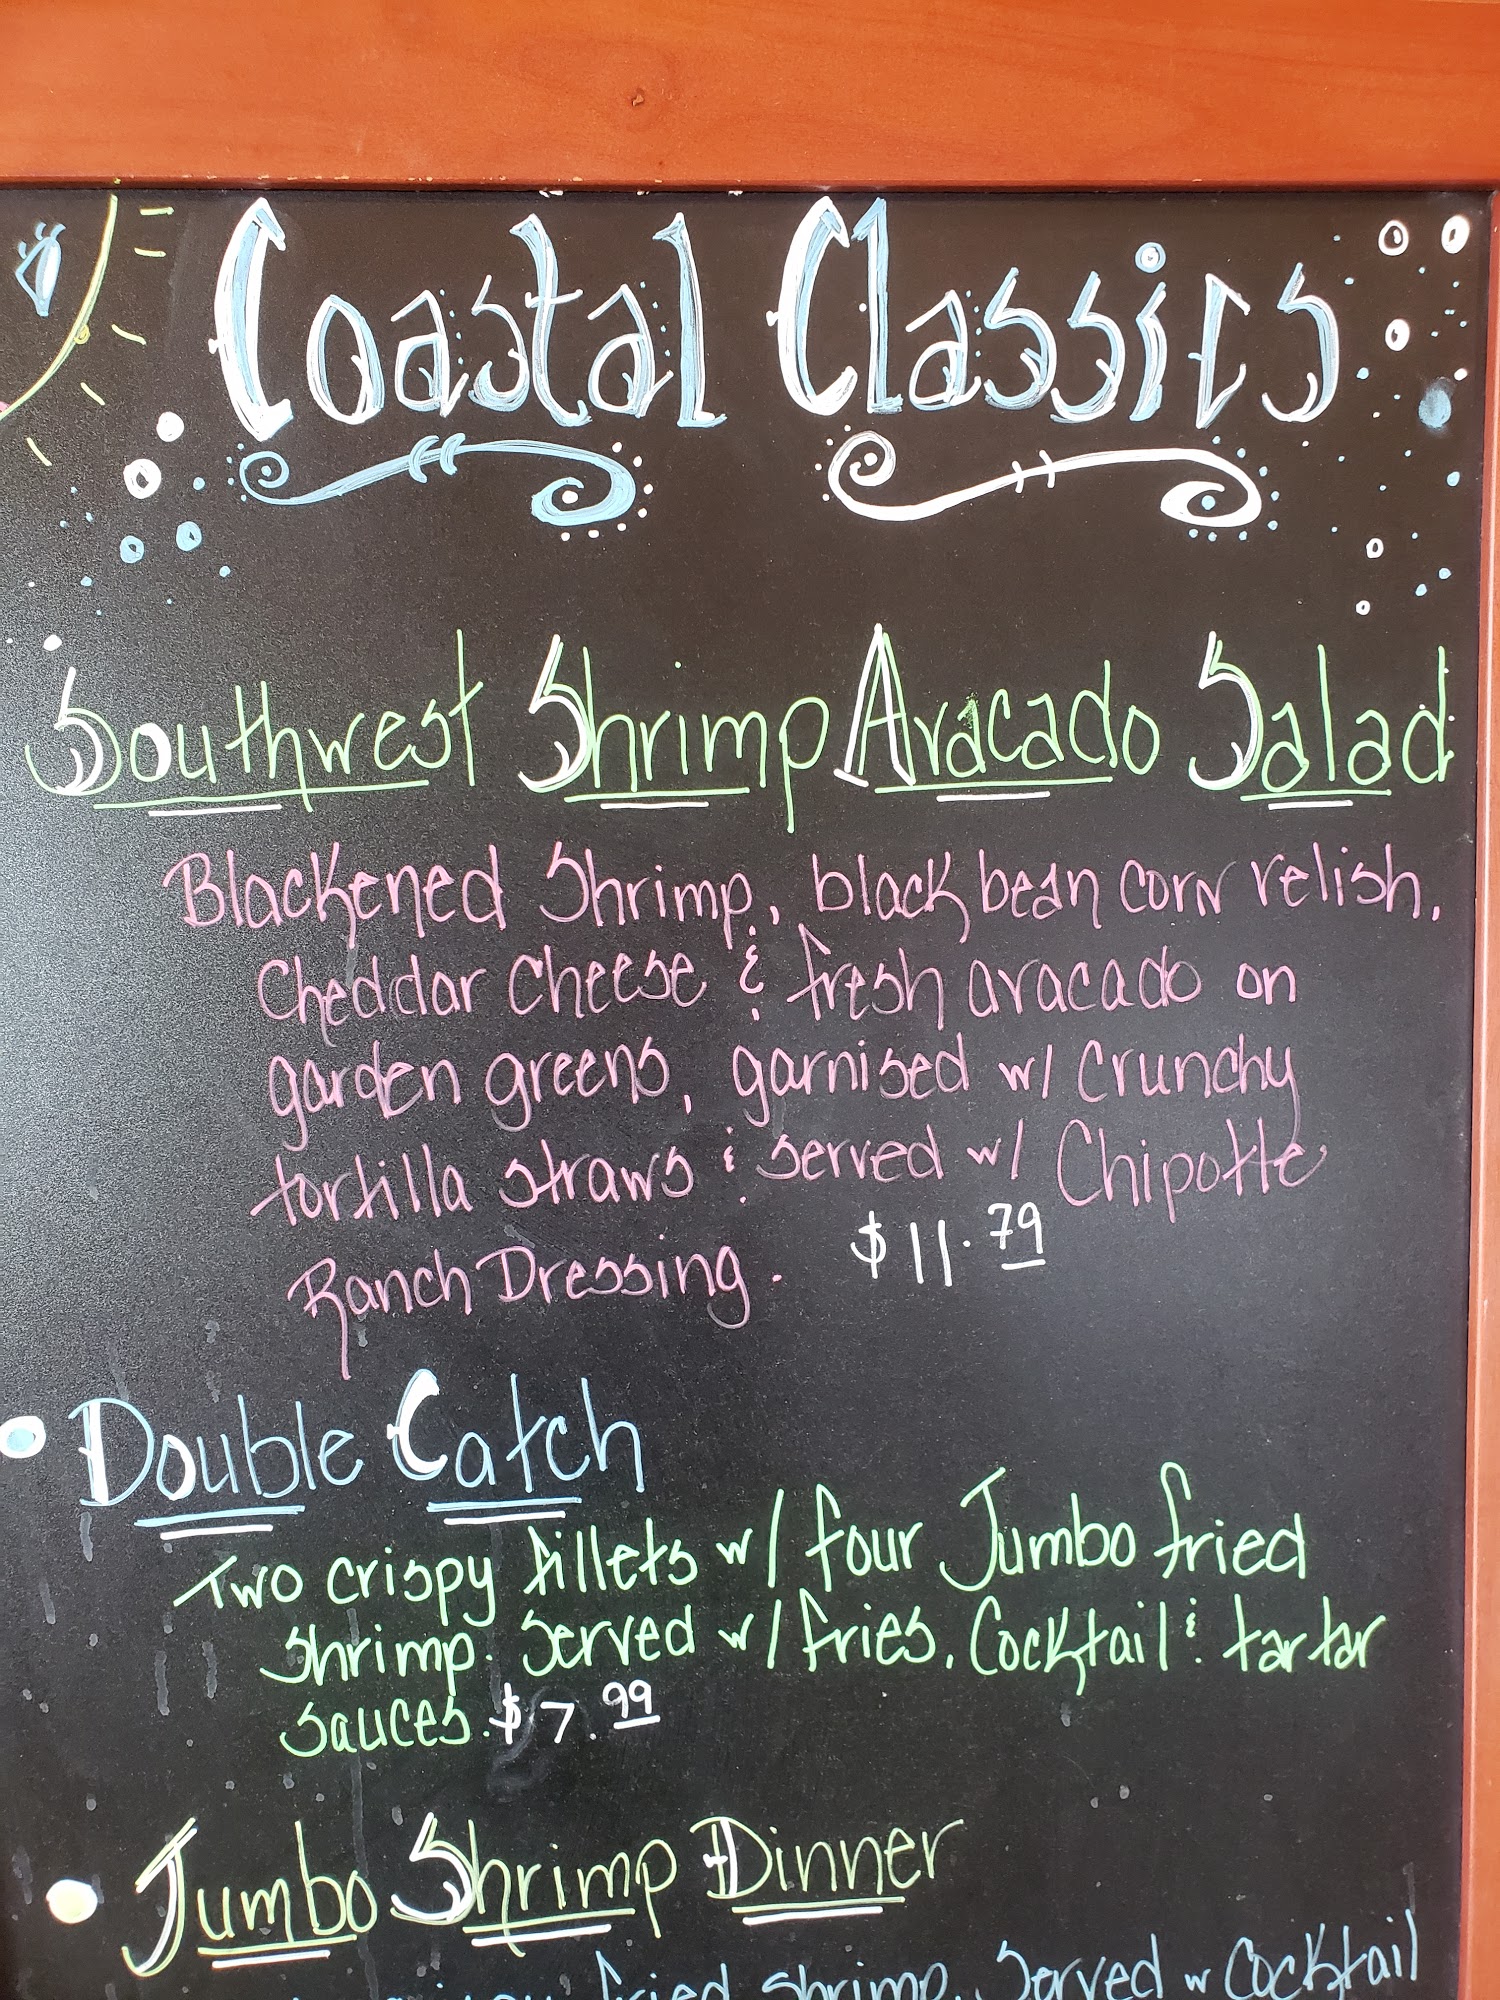 Coastal Classics
Southwest Shrimp Avacado Salad
Blackened Shrimp, black bean corn relish,
Cheddar Cheese & fresh avacado on
garden greens, garnised w/ Crunchy
tortilla straws & served w/ Chipotte
Ranch Dressing. $11.79
Double Catch
Two crispy fillets w/ four Jumbo fried
shrimp. Served w/ fries, Cocktail & tartar
sauces. $7.99
Jumbo Shrimp Dinner
fried shrimp. Served w Cocktail